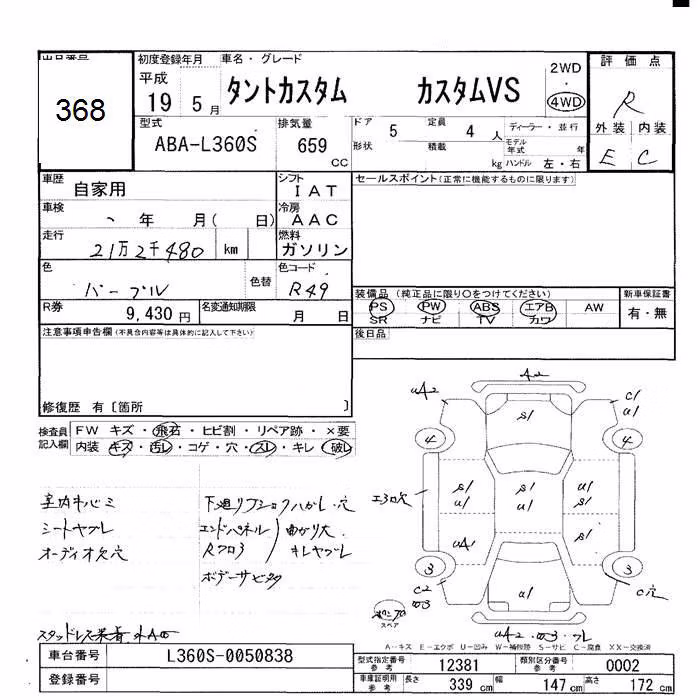 出品番号
368
初度登録年月
車名・グレード
平成
19 5月
タントカスタム カスタムVS
2WD
・
4WD
評価点
R
外装 内装
E C
型式
ABA-L360S
排気量
659
CC
ドア 5
定員 4 人
ディーラー・並行
形状
積載 kg
モデル年式 年
ハンドル 左・右
車歴
自家用
シフト
IAT
セールスポイント(正常に機能するものに限ります)
車検
年 月( 日)
冷房
AAC
走行
21万2千480 km
燃料
ガソリン
色
パープル
色替
色コード
R49
装備品 (純正品に限り○をつけてください)
新車保証書
PS PW ABS エアB AW
SR ナビ TV カワ
有・無
R券
9,430円
名変通知期限
月 日
注意事項申告欄(不具合内容等は具体的に記入して下さい)
後日品
修復歴 有〔箇所 〕
検査員記入欄
FW キズ・飛石・ヒビ割・リペア跡・×要
内装・キズ・汚レ・コゲ・穴・スレ・キレ・破レ
室内キバミ
シートヤブレ
オーディオ欠穴
下廻り
エンドパネル
Rフロ3
曲がり大
キレヤブレ
ボデーサビ
A2
UA2
C1
U1
S1
4
4
エ3ロ欠
S1
U1
S1
U1
U1
S1
UA1
S1
3
3
C2
W3
U1
C穴
スペア
UA2・W3・フレ
A‥キズ E‥エクボ U‥凹み W‥補修跡 S‥サビ C‥腐食 XX‥交換済
車台番号
L360S-0050838
登録番号
型式指定番号
参考
12381
類別区分番号
参考
0002
車庫証明用
参考
長さ 339 cm
幅 147 cm
高さ 172 cm